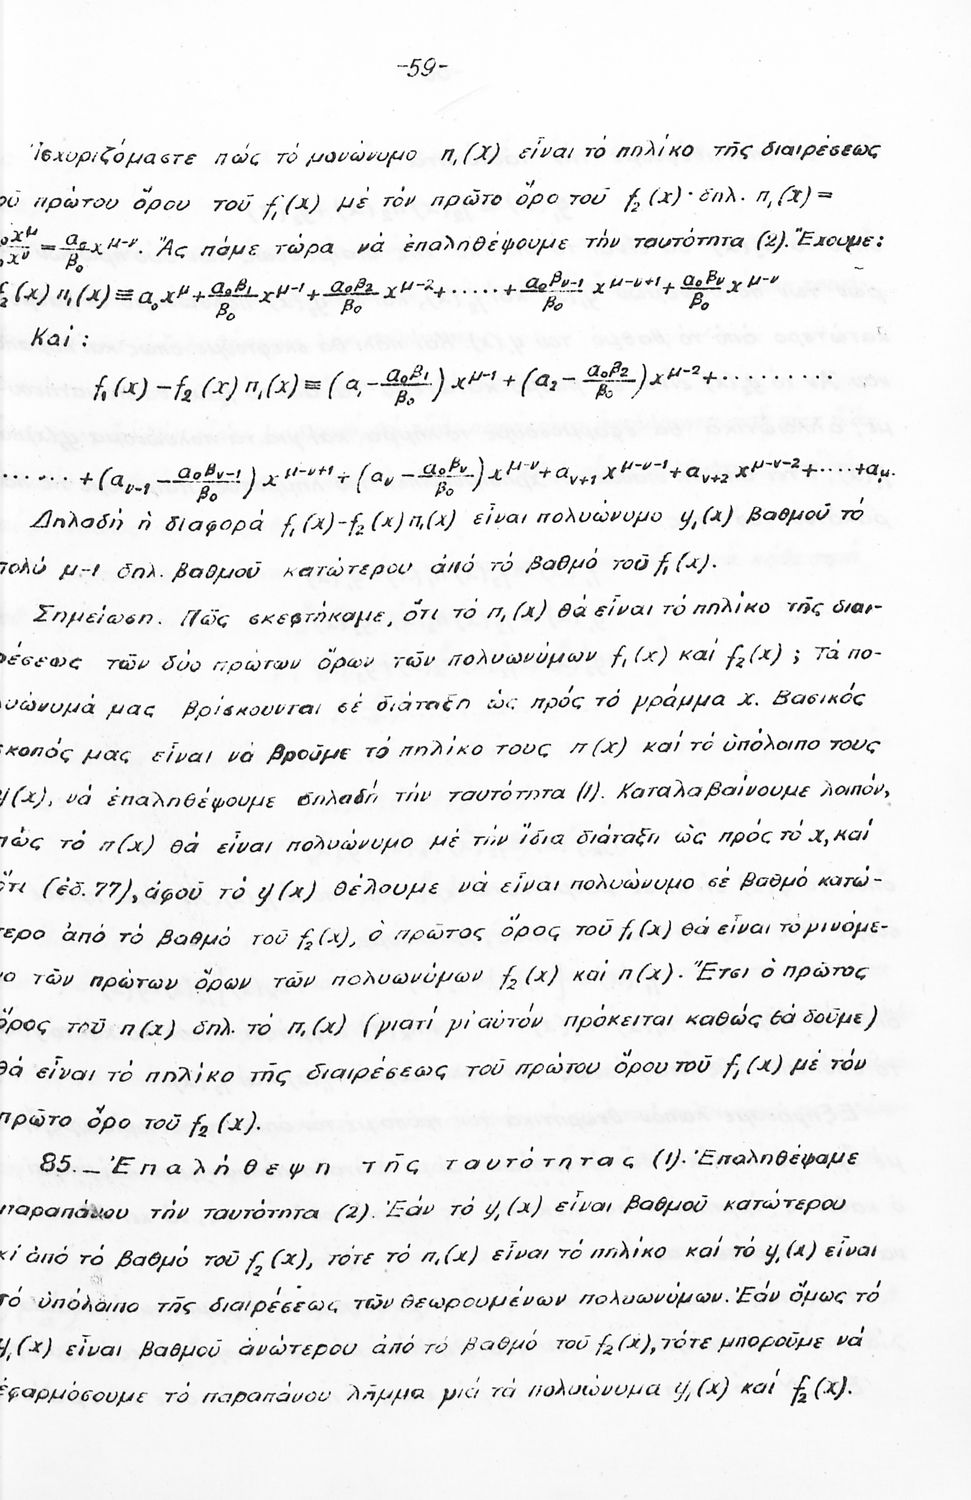 -59-
Ἰσχυριζόμαστε πώς τό μονώνυμο π₁(χ) εἶναι τό πηλίκο τῆς διαιρέσεως
οῦ πρώτου ὅρου τοῦ f₁(χ) μέ τόν πρῶτο ὅρο τοῦ f₂(χ)· δηλ. π₁(χ)=
₀χ^μ/₀χ^ν = α₀/β₀ χ^μ-ν. Ἄς πάμε τώρα νά ἐπαληθέψουμε τήν ταυτότητα (2). Ἔχουμε:
f₂(χ)π₁(χ)≡α₀χ^μ+α₀β₁/β₀ χ^μ-1+α₀β₂/β₀ χ^μ-2+·····+α₀βν-1/β₀ χ^μ-ν+1+α₀βν/β₀ χ^μ-ν
Καί:
f₁(χ)-f₂(χ)π₁(χ)≡(α₁-α₀β₁/β₀)χ^μ-1+(α₂-α₀β₂/β₀)χ^μ-2+··········
·····+(αν-1-α₀βν-1/β₀)χ^μ-ν+1+(αν-α₀βν/β₀)χ^μ-ν+αν+1χ^μ-ν-1+αν+2χ^μ-ν-2+····+αμ.
Δηλαδή ἡ διαφορά f₁(χ)-f₂(χ)π₁(χ) εἶναι πολυώνυμο y₁(χ) βαθμοῦ τό
πολύ μ-1 δηλ. βαθμοῦ κατώτερου ἀπό τό βαθμό τοῦ f₁(χ).
Σημείωση. Πῶς σκεφτήκαμε, ὅτι τό π₁(χ) θά εἶναι τό πηλίκο τῆς διαι-
ρέσεως τῶν δύο πρώτων ὅρων τῶν πολυωνύμων f₁(χ) καί f₂(χ); Τά πο-
λυώνυμά μας βρίσκουνται σέ διάταξη ὡς πρός τό γράμμα χ. Βασικός
σκοπός μας εἶναι νά βροῦμε τό πηλίκο τους π(χ) καί τό ὑπόλοιπο τους
y(χ), νά ἐπαληθέψουμε δηλαδή τήν ταυτότητα (1). Καταλαβαίνουμε λοιπόν,
πώς τό π(χ) θά εἶναι πολυώνυμο μέ τήν ἴδια διάταξη ὡς πρός τό χ, καί
ὅτι (ἐδ. 77), ἀφοῦ τό y(χ) θέλουμε νά εἶναι πολυώνυμο σέ βαθμό κατώ-
τερο ἀπό τό βαθμό τοῦ f₂(χ), ὁ πρῶτος ὅρος τοῦ f₁(χ) θά εἶναι τό γινόμε-
νο τῶν πρώτων ὅρων τῶν πολυωνύμων f₂(χ) καί π(χ). Ἔτσι ὁ πρῶτος
ὅρος τοῦ π(χ) δηλ. τό π₁(χ) (γιατί γι' αὐτόν πρόκειται καθώς θά δοῦμε)
θά εἶναι τό πηλίκο τῆς διαιρέσεως τοῦ πρώτου ὅρου τοῦ f₁(χ) μέ τόν
πρῶτο ὅρο τοῦ f₂(χ).
85._ Ἐπαλήθεψη τῆς ταυτότητας (1). Ἐπαληθέψαμε
παραπάνου τήν ταυτότητα (2). Ἐάν τό y₁(χ) εἶναι βαθμοῦ κατώτερου
κί ἀπό τό βαθμό τοῦ f₂(χ), τότε τό π₁(χ) εἶναι τό πηλίκο καί τό y₁(χ) εἶναι
τό ὑπόλοιπο τῆς διαιρέσεως τῶν θεωρουμένων πολυωνύμων. Ἐάν ὅμως τό
y₁(χ) εἶναι βαθμοῦ ἀνώτερου ἀπό τό βαθμό τοῦ f₂(χ), τότε μποροῦμε νά
ἐφαρμόσουμε τό παραπάνου λῆμμα γιά τά πολυώνυμα y₁(χ) καί f₂(χ).